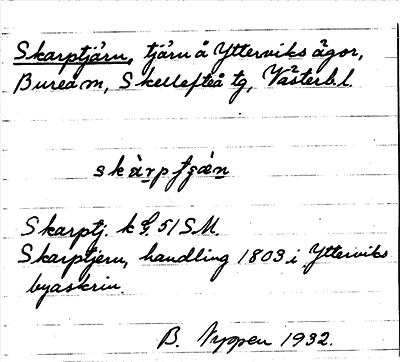 Skarptjärn, tjärn å Ytterviks ägor,
Bureå m, Skellefteå tg, Västerb. l.
Skarptj. k 51 SM.
Skarptjern, handling 1803 i Ytterviks
byaskrin.
B. 1932.